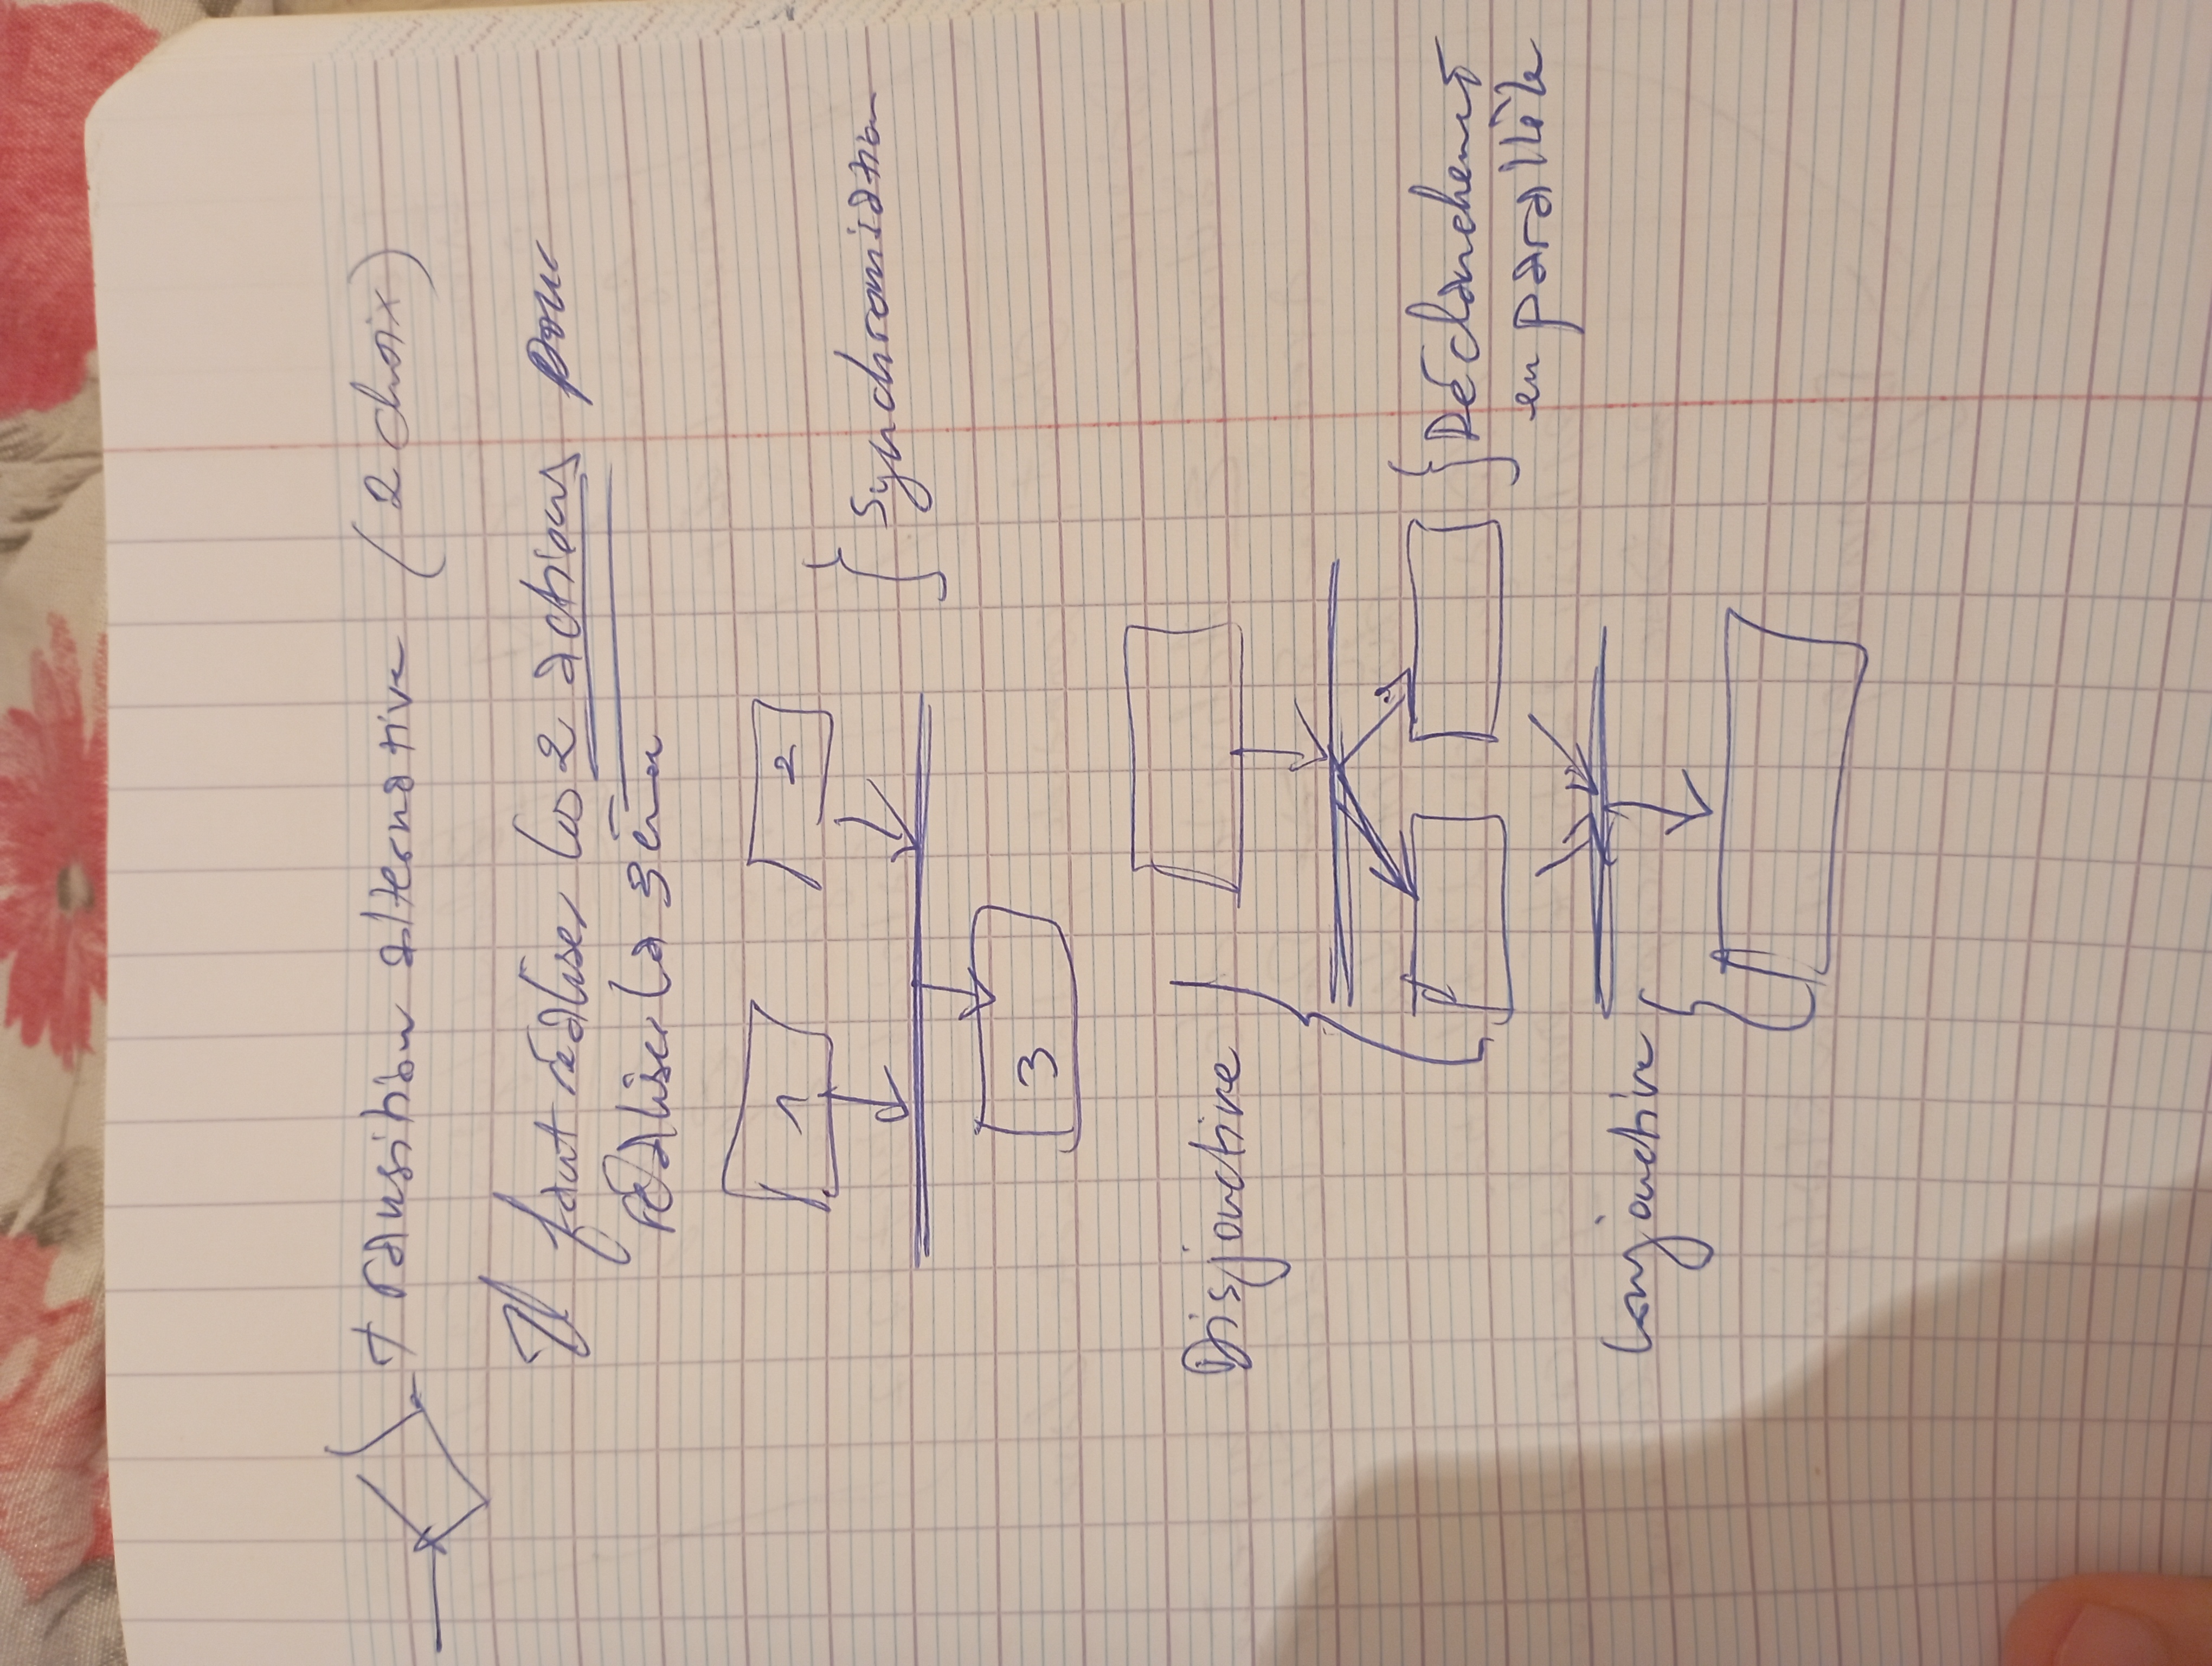 transition alternative (2 choix)
Il faut réaliser les 2 actions pour
réaliser la 3ème
1
2
3
} Synchronisation
Disjonctive
} Déclanchement
en parallèle
Conjonctive